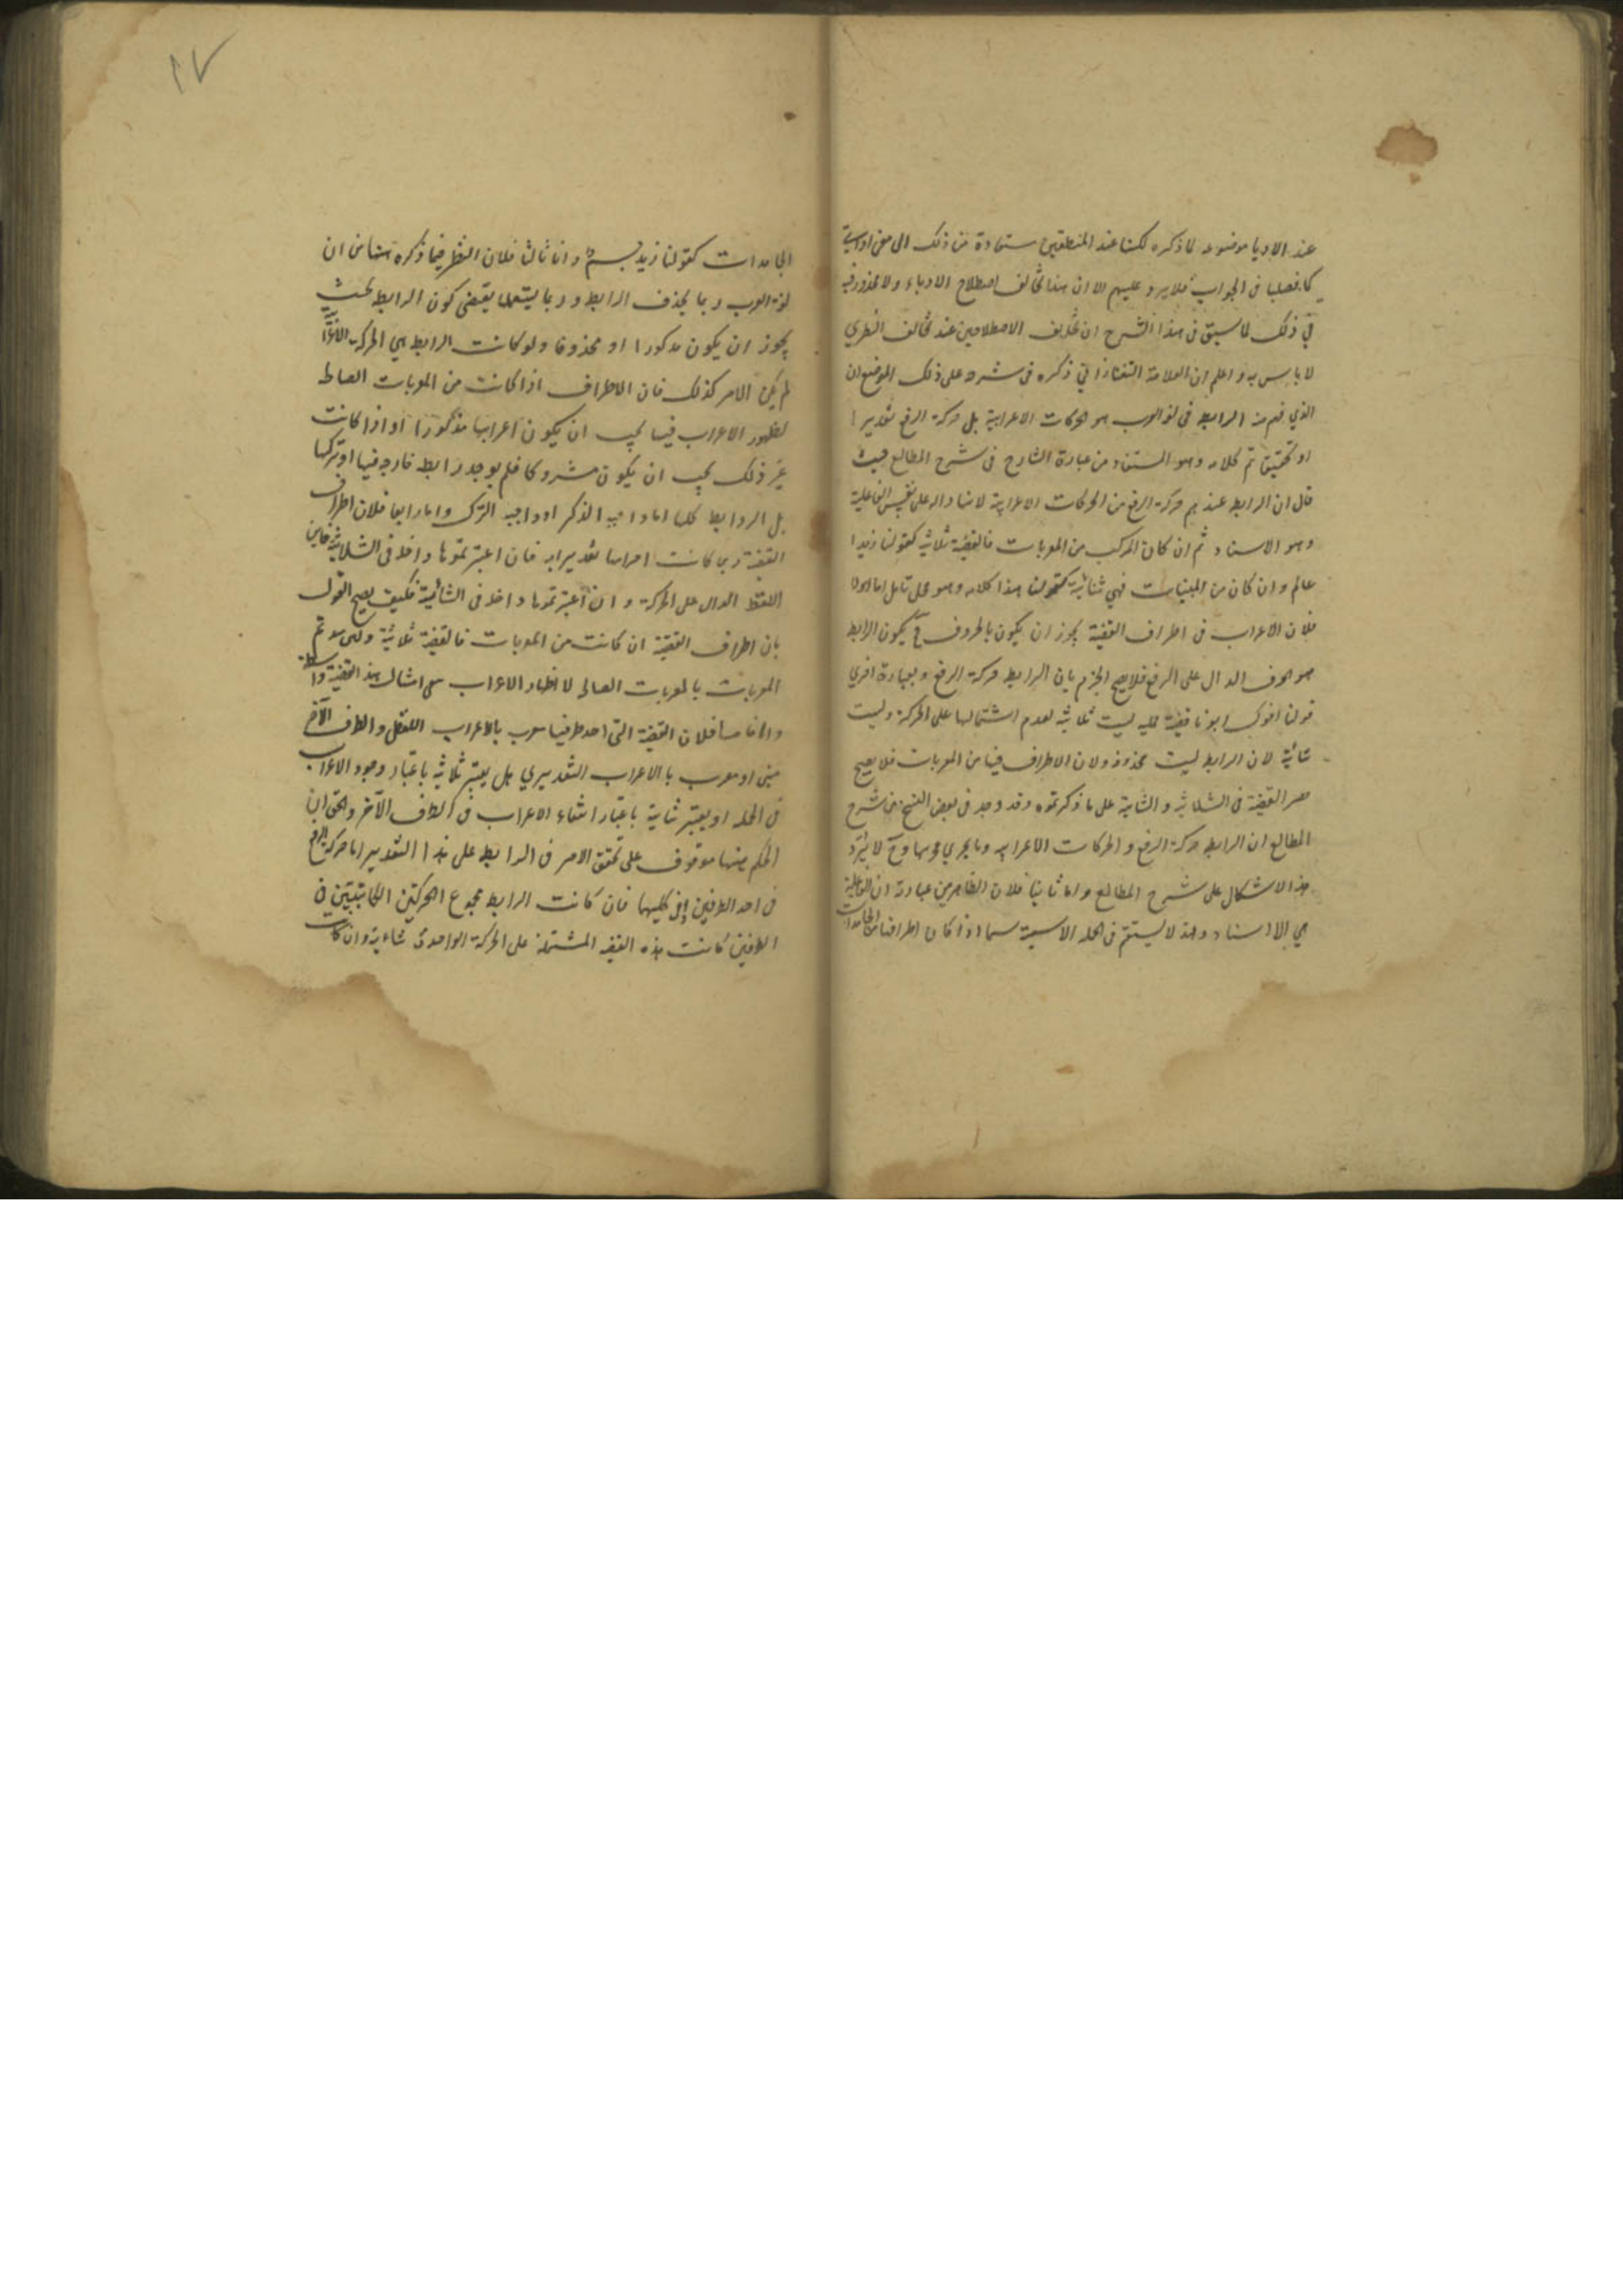 عند الادبا موضوعه لما ذكره لكنها عند المنطقيين مستعارة من ذلك الى معنى اداة
كما فصلها فى الجواب فلا يرد عليهم الا ان هذا يخالف اصطلاح الادباء ولا محذور فيه
فى ذلك لما سبق فى هذا الشرح ان تخالف الاصطلاحين عند تخالف النظرين
لا باس به واعلم ان العلامة التفتازانى ذكره فى شرحه على ذلك الموضع ان
الذي فهم من الرابط فى لغة العرب هو الحركات الاعرابية بل حركة الرفع تقديرا
او تحقيقا تم كلامه وهو المستفاد من عبارة الشارح فى شرح المطالع حيث
قال ان الرابط عندهم حركة الرفع من الحركات الاعرابية لانها دالة على نفس الفاعلية
وهو الاسناد ثم ان كان المركب من المعربات فالقضية ثلاثية كقولنا زيد
عالم وان كان من المبنيات فهي ثنائية كقولنا هذا كلامه وهو محل تامل اما اولا
فلان الاعراب فى اطراف القضية يجوز ان يكون بالحروف فح يكون الرابط
هو الحرف الدال على الرفع فلا يصح الجزم بان الرابط حركة الرفع وبعبارة اخري
قولنا اخوك ابونا قضية حمليه ليست ثلاثية لعدم اشتمالها على الحركة وليست
ثنائية لان الرابط ليست محذوفة ولان الاطراف فيها من المعربات فلا يصح
حصر القضية فى الثلاثية والثنائية على ما ذكرتموه وقد وجد فى بعض النسخ من شرح
المطالع ان الرابط حركة الرفع والحركات الاعرابيه وما يجري مجريها وح لا يرد
هذا الاشكال على شرح المطالع واما ثانيا فلان الظاهر من عبارته ان الفاعلية
هي الاسناد وهذا لا يستقيم فى الجملة الاسمية سيما اذا كان اطرافها من الجامدات
١٧
الجامدات كقولنا زيد جسم واما ثالثا فلان النظر فيما ذكره هنا من ان
لغة العرب ربما يحذف الرابط وربما يستعملها يقتضى كون الرابط بحيث
يجوز ان يكون مذكورا او محذوفا ولو كانت الرابط هي الحركة الاعرابية
لم يكن الامر كذلك فان الاطراف اذا كانت من المعربات الصالحة
لظهور الاعراب فيها يجب ان يكون اعرابها مذكورا او اذا كانت
غير ذلك يجب ان يكون متروكا فلم يوجد رابط خارجه فيها او تركها
بل الروابط كلها اما واجبه الذكر او واجبه الترك واما رابعا فلان اطراف
القضية ربما كانت اعرابها تقديرايه فان اعتبرتموها داخله فى الثلاثية فاين
اللفظ الدال على الحركة وان اعتبرتموها داخله فى الثنائية فكيف يصح القول
بان اطراف القضية ان كانت من المعربات فالقضية ثلاثية
المعربات بالمعربات الصالحة لاظهار الاعراب
واما خامسا فلان القضية التى احد طرفيها معرب بالاعراب اللفظى والطرف الآخر
مبنى او معرب بالاعراب التقديري هل يعتبر ثلاثية باعتبار وجود الاعراب
فى الجملة او يعتبر ثنائية باعتبار انتفاء الاعراب فى الطرف الآخر والحق ان
الحكم منها موقوف على تحقق الامر فى الرابط على هذا التقدير اما حركة الرفع
فى احد الطرفين او فى كليهما فان كانت الرابط مجموع الحركتين الثابتتين فى
الطرفين كانت هذه القضيه المشتملة على الحركة الواحدة ثنائية وان كانت